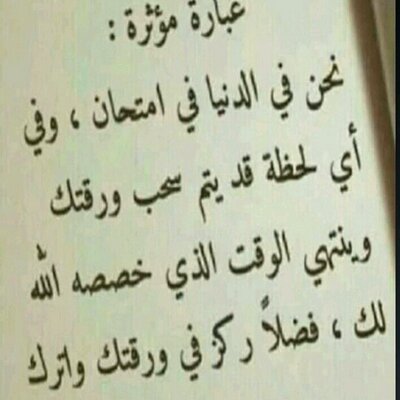 عبارة مؤثرة :
نحن في الدنيا في امتحان ، وفي
أي لحظة قد يتم سحب ورقتك
وينتهي الوقت الذي خصصه الله
لك ، فضلاً ركز في ورقتك واترك